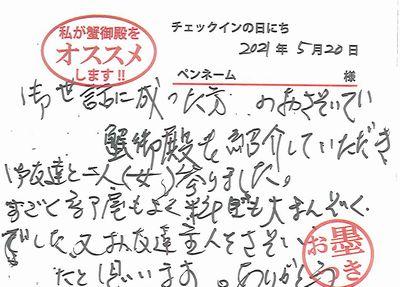 私が蟹御殿を
オススメ
します!!
チェックインの日にち
2021年 5月20日
ペンネーム 様
御世話に成った方のおさそいで
蟹御殿を紹介していただき
御友達と二人(女)参りました。
すごく部屋もよく料理も大まんぞく
でした、又お友達主人をさそい
たと思います。ありがとう
お墨
き